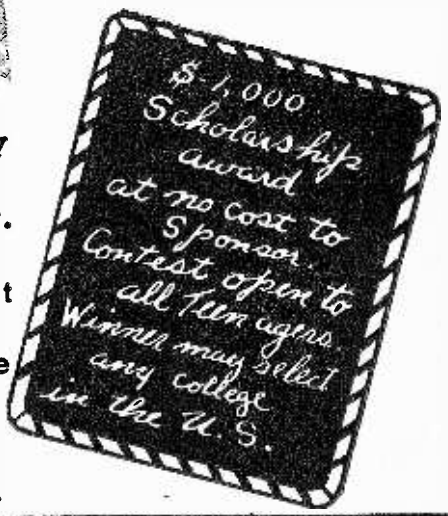 $1,000
Scholarship
award
at no cost to
Sponsor.
Contest open to
all Teen agers.
Winner may select
any college
in the U.S.